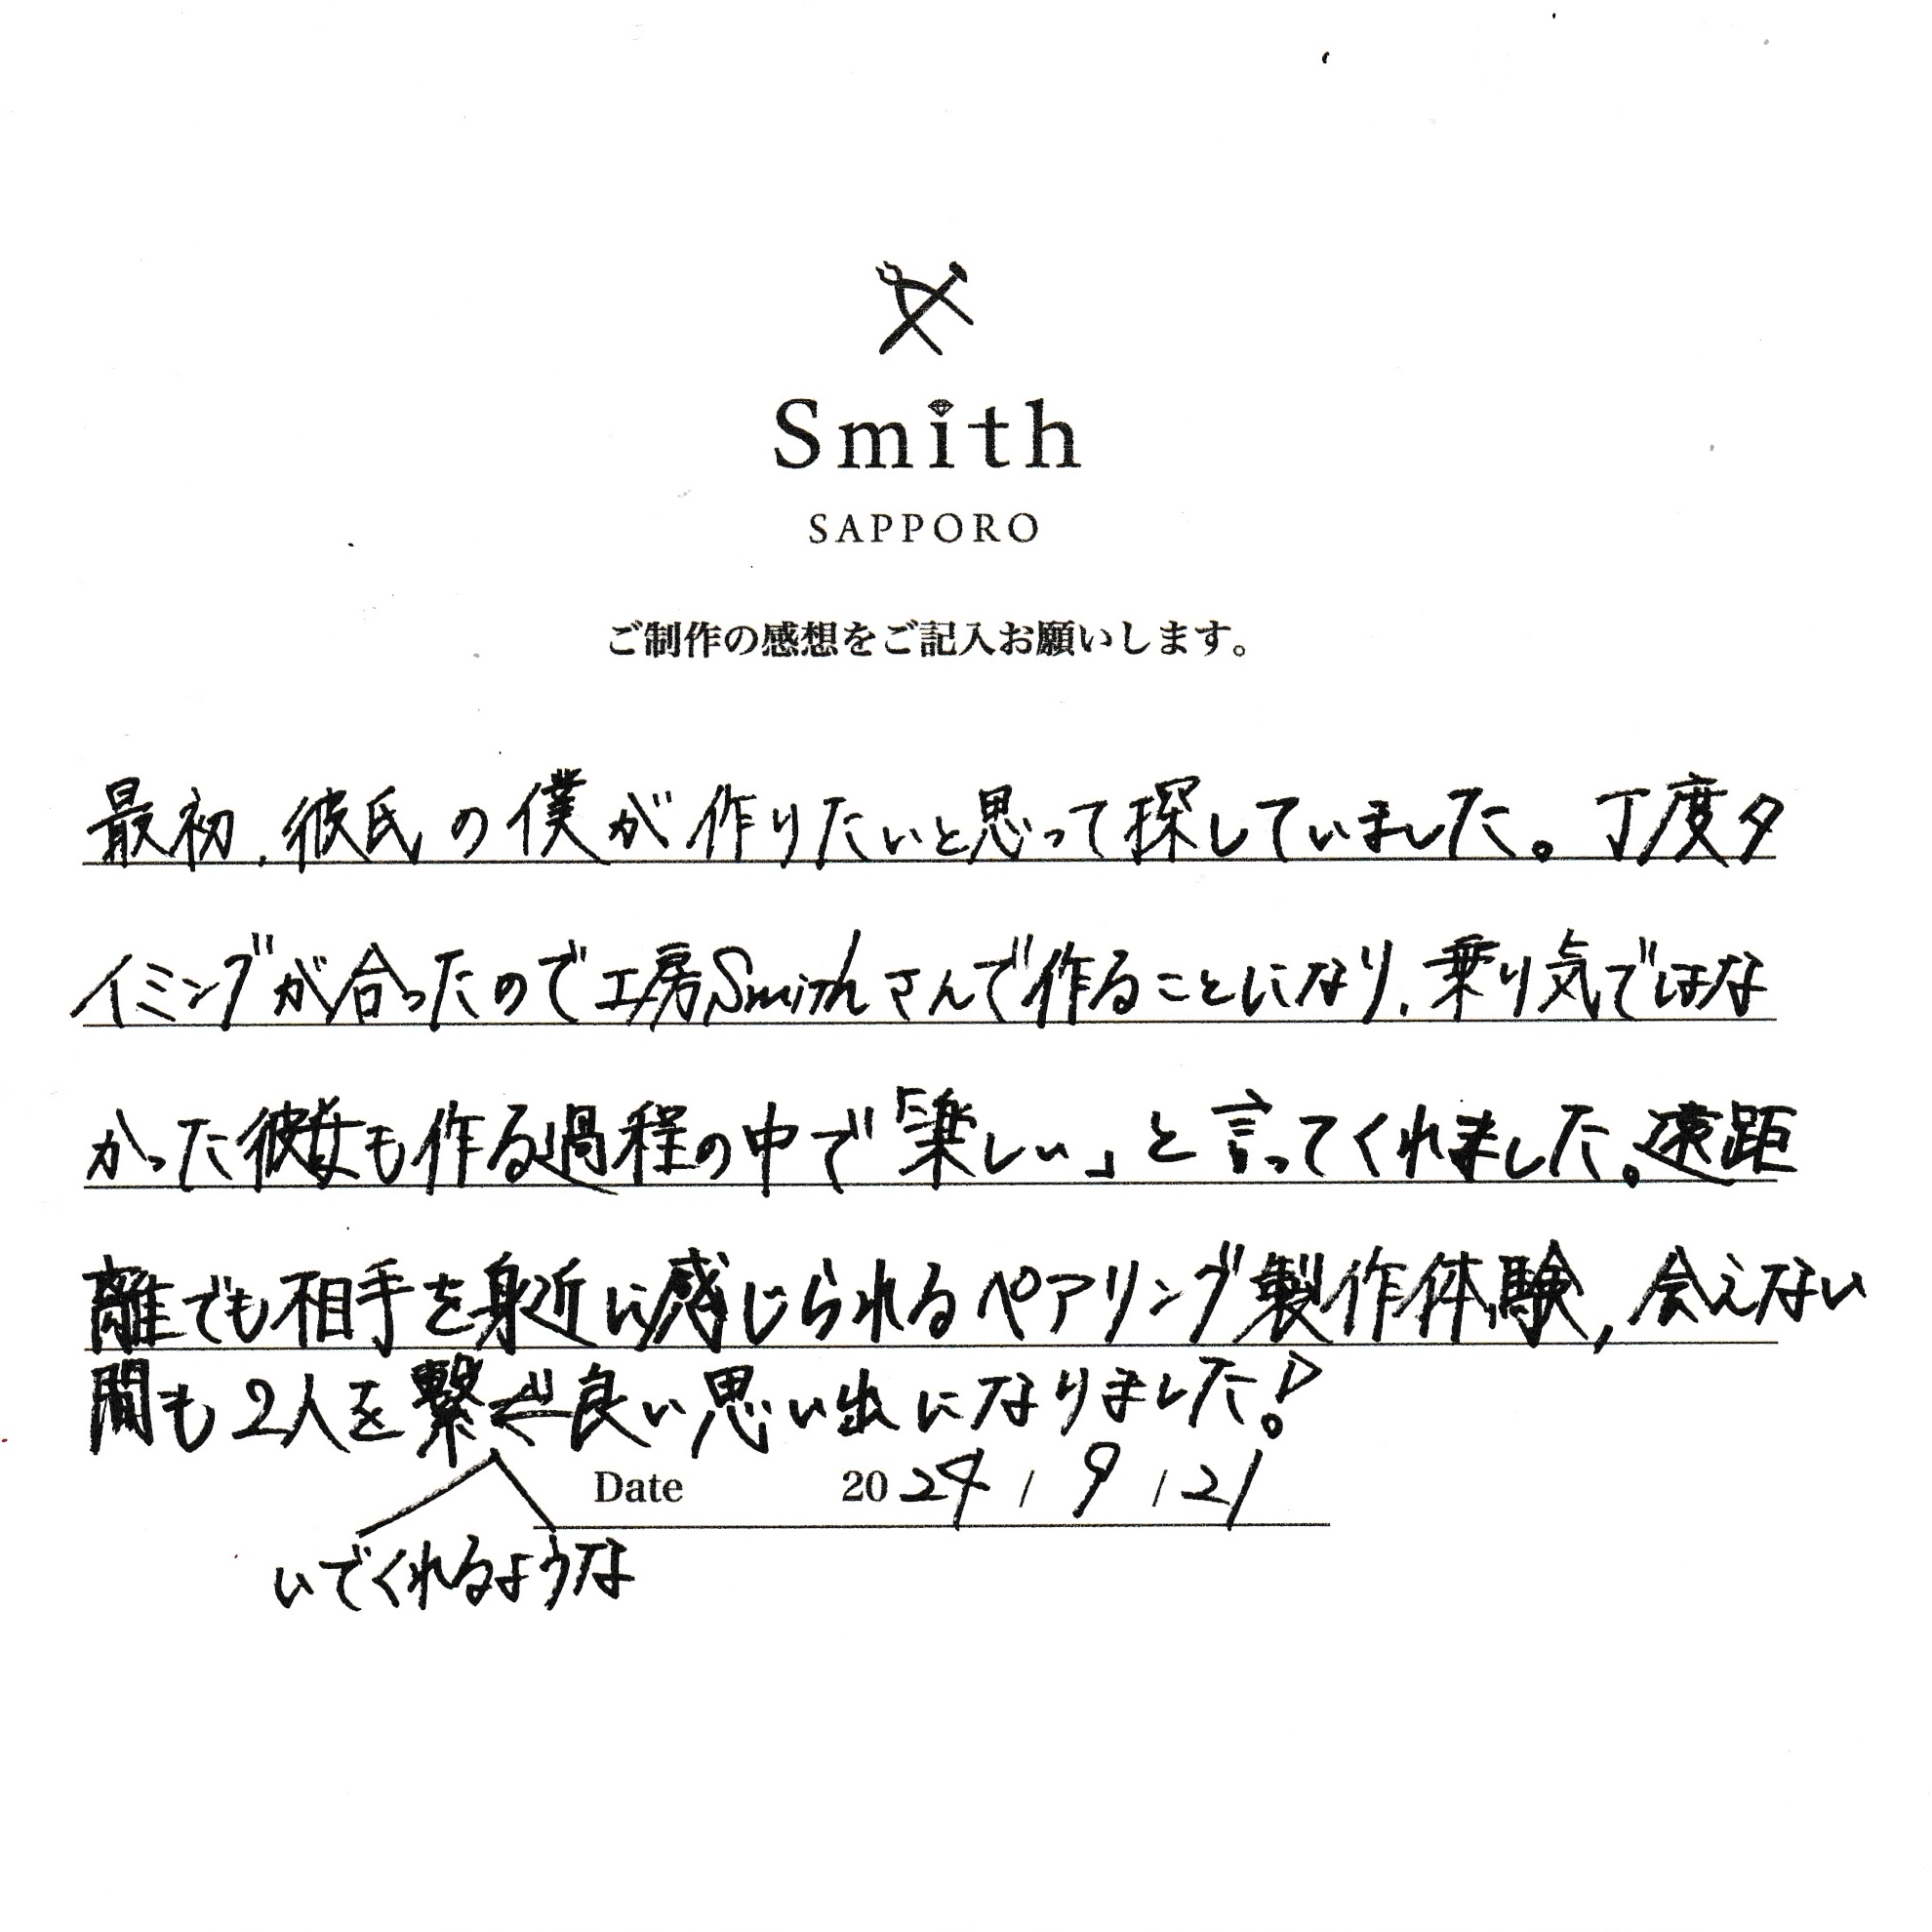 Smith
SAPPORO
ご制作の感想をご記入お願いします。
最初、彼氏の僕が作りたいと思って探していました。丁度タ
イミングが合ったので工房Smithさんで作ることになり、乗り気ではな
かった彼女も作る過程の中で「楽しい」と言ってくれました。遠距
離でも相手を身近に感じられるペアリング製作体験、会えない
間も2人を繋 良い思い出になりました!
Date 2024 / 9 / 21
いでくれるような